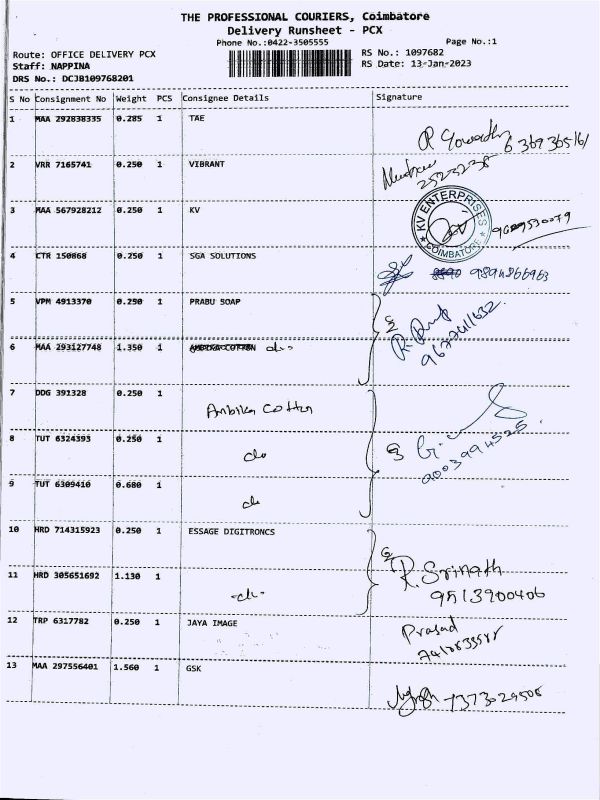 THE PROFESSIONAL COURIERS, Coimbatore
Delivery Runsheet - PCX
Phone No.:0422-3505555
Page No.:1
Route: OFFICE DELIVERY PCX
RS No.: 1097682
Staff: NAPPINA
RS Date: 13-Jan-2023
DRS No.: DCJB109768201
S No Consignment No Weight PCS Consignee Details Signature
1 MAA 292838335 0.285 1 TAE
2 VRR 7165741 0.250 1 VIBRANT
3 MAA 567928212 0.250 1 KV
KV ENTERPRISES
COIMBATORE
4 CTR 150868 0.250 1 SGA SOLUTIONS
5 VPM 4913370 0.250 1 PRABU SOAP
9677411632
6 MAA 293127748 1.350 1 do
7 DDG 391328 0.250 1 Ambika Cotton
8 TUT 6324393 0.250 1 do
9003994525
9 TUT 6309410 0.680 1 do
10 HRD 714315923 0.250 1 ESSAGE DIGITRONCS
11 HRD 305651692 1.130 1 -do-
R. Srinath
9513900406
12 TRP 6317782 0.250 1 JAYA IMAGE
Prasad
13 MAA 297556401 1.560 1 GSK
7373029506